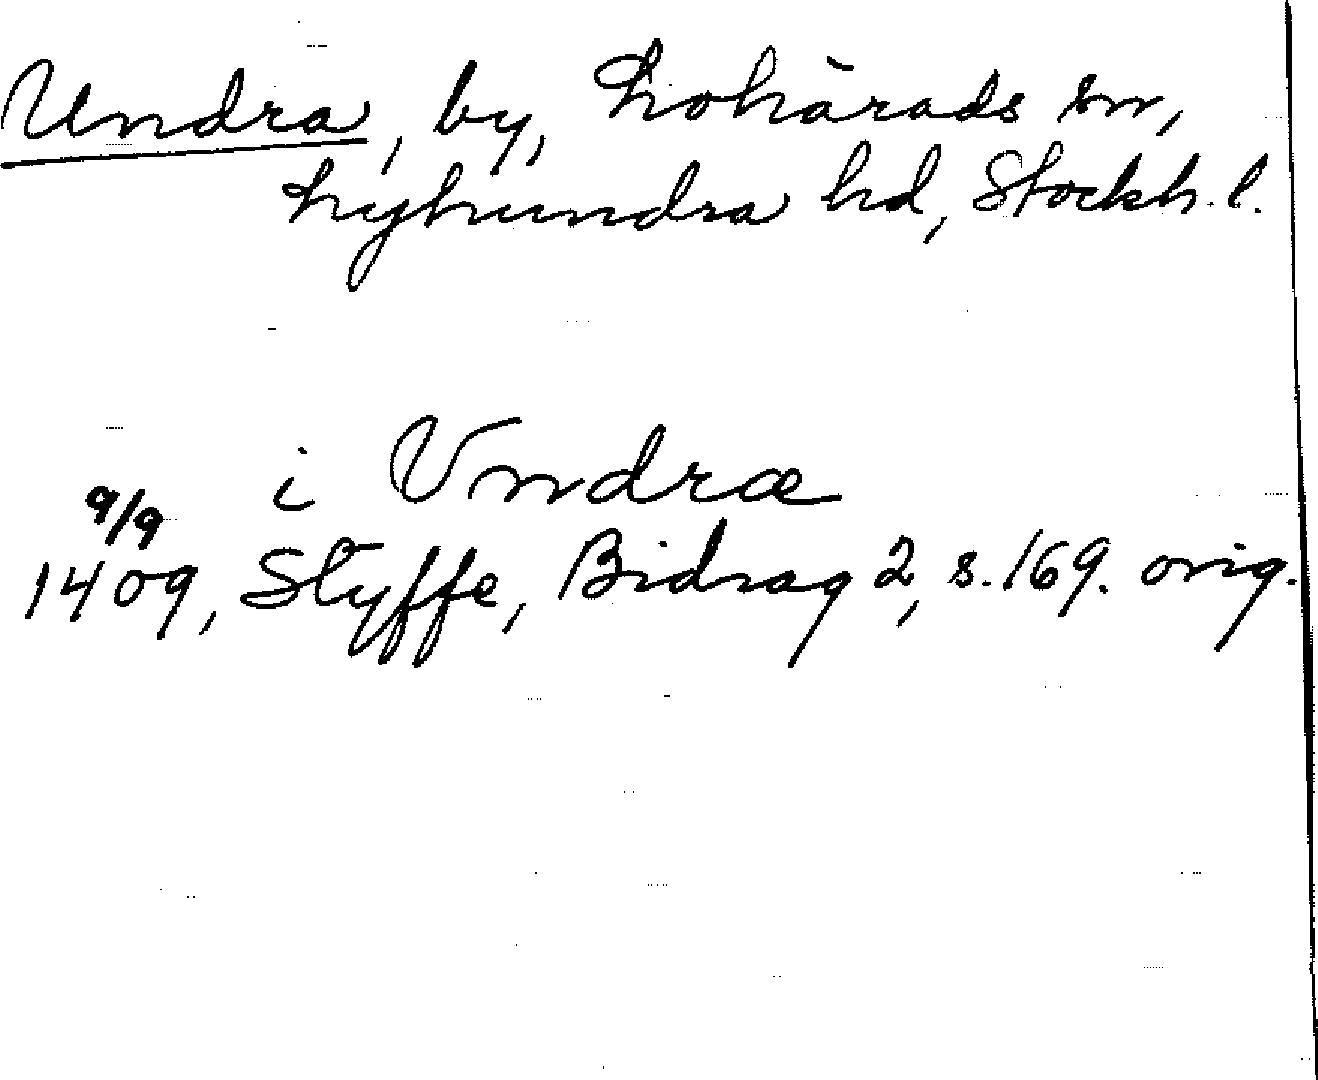 Undra, by, Lohärads sn,
Lyhundra hd, Stockh. l.
i Vndræ
9/9
1409, Styffe, Bidrag 2, s. 169. orig.